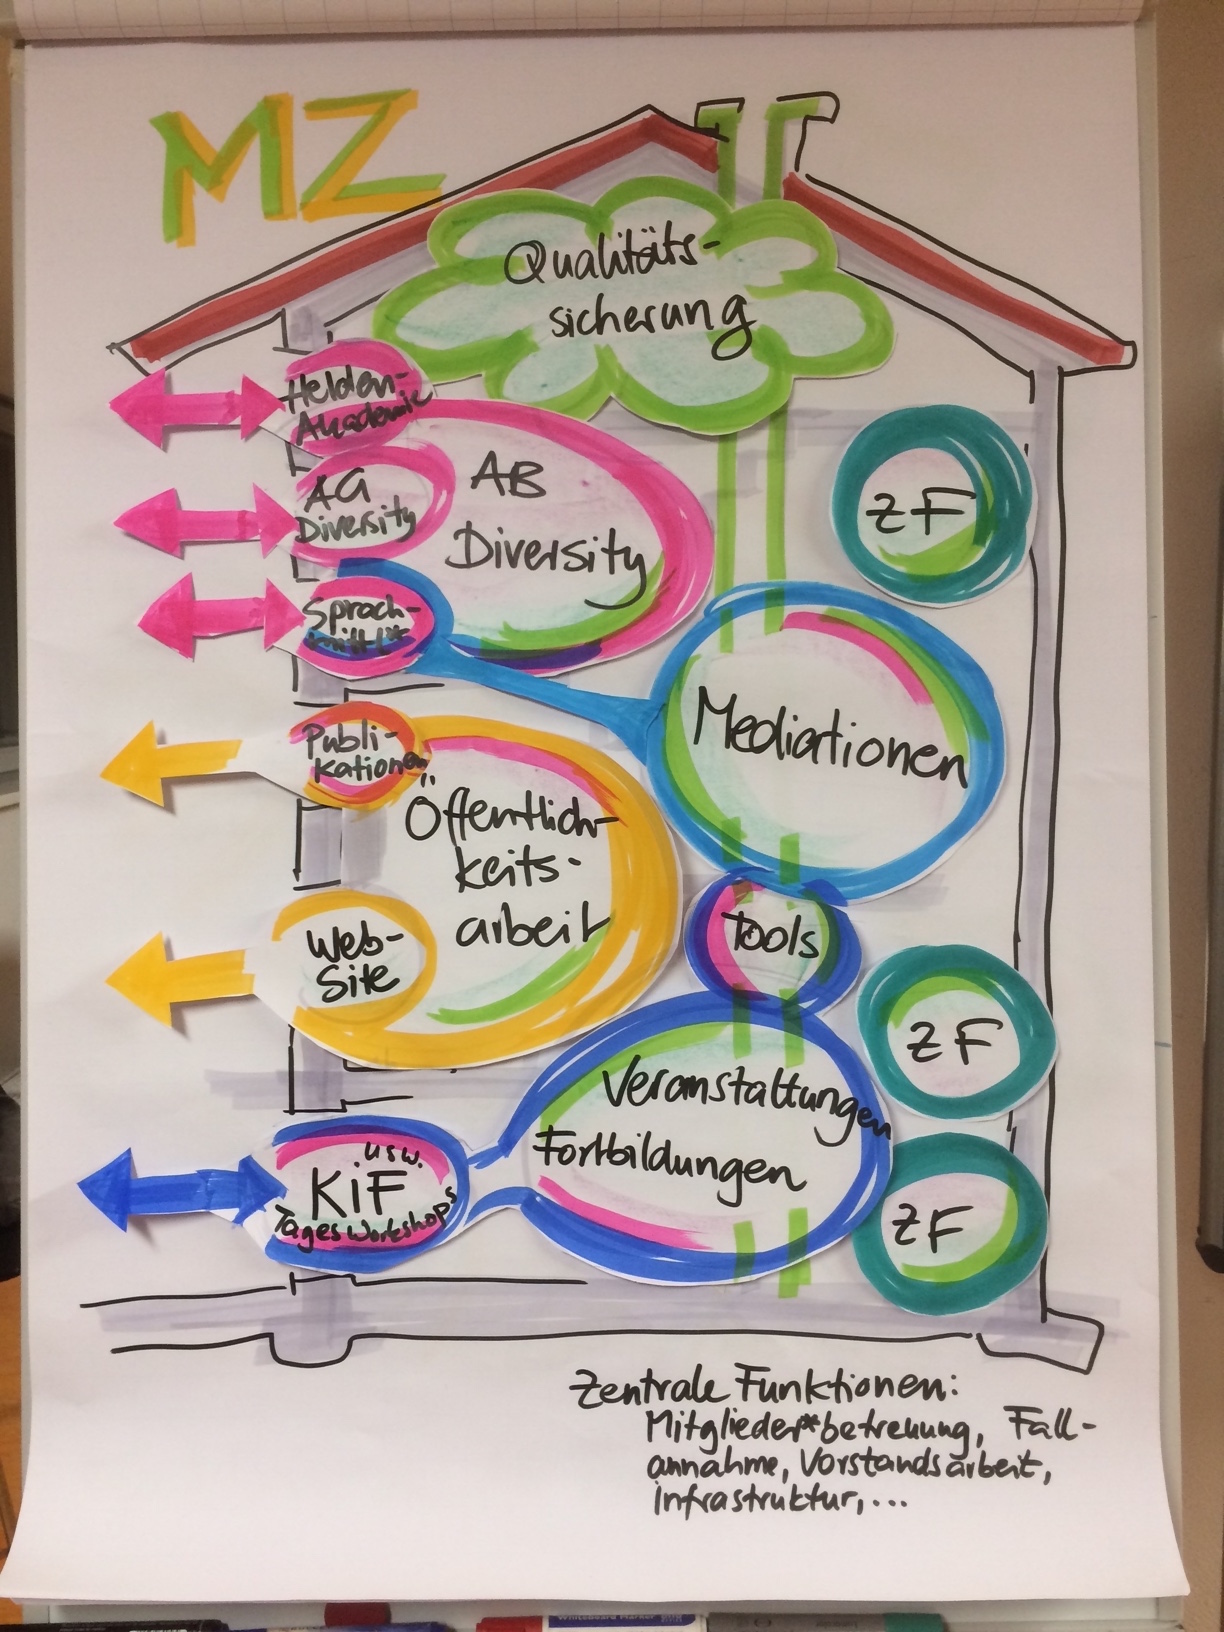 MZ
Qualitäts-
sicherung
Helden-
Akademie
AG
Diversity
AB
Diversity
ZF
Sprach-
mittl*
Publi-
kationen
Öffentlich-
keits-
arbeit
Mediationen
Web-
Site
Tools
ZF
Veranstaltungen
Fortbildungen
usw.
KiF
Tagesworkshops
ZF
Zentrale Funktionen:
Mitglieder*betreuung, Fall-
annahme, Vorstandsarbeit,
Infrastruktur,...
Whiteboard Marker